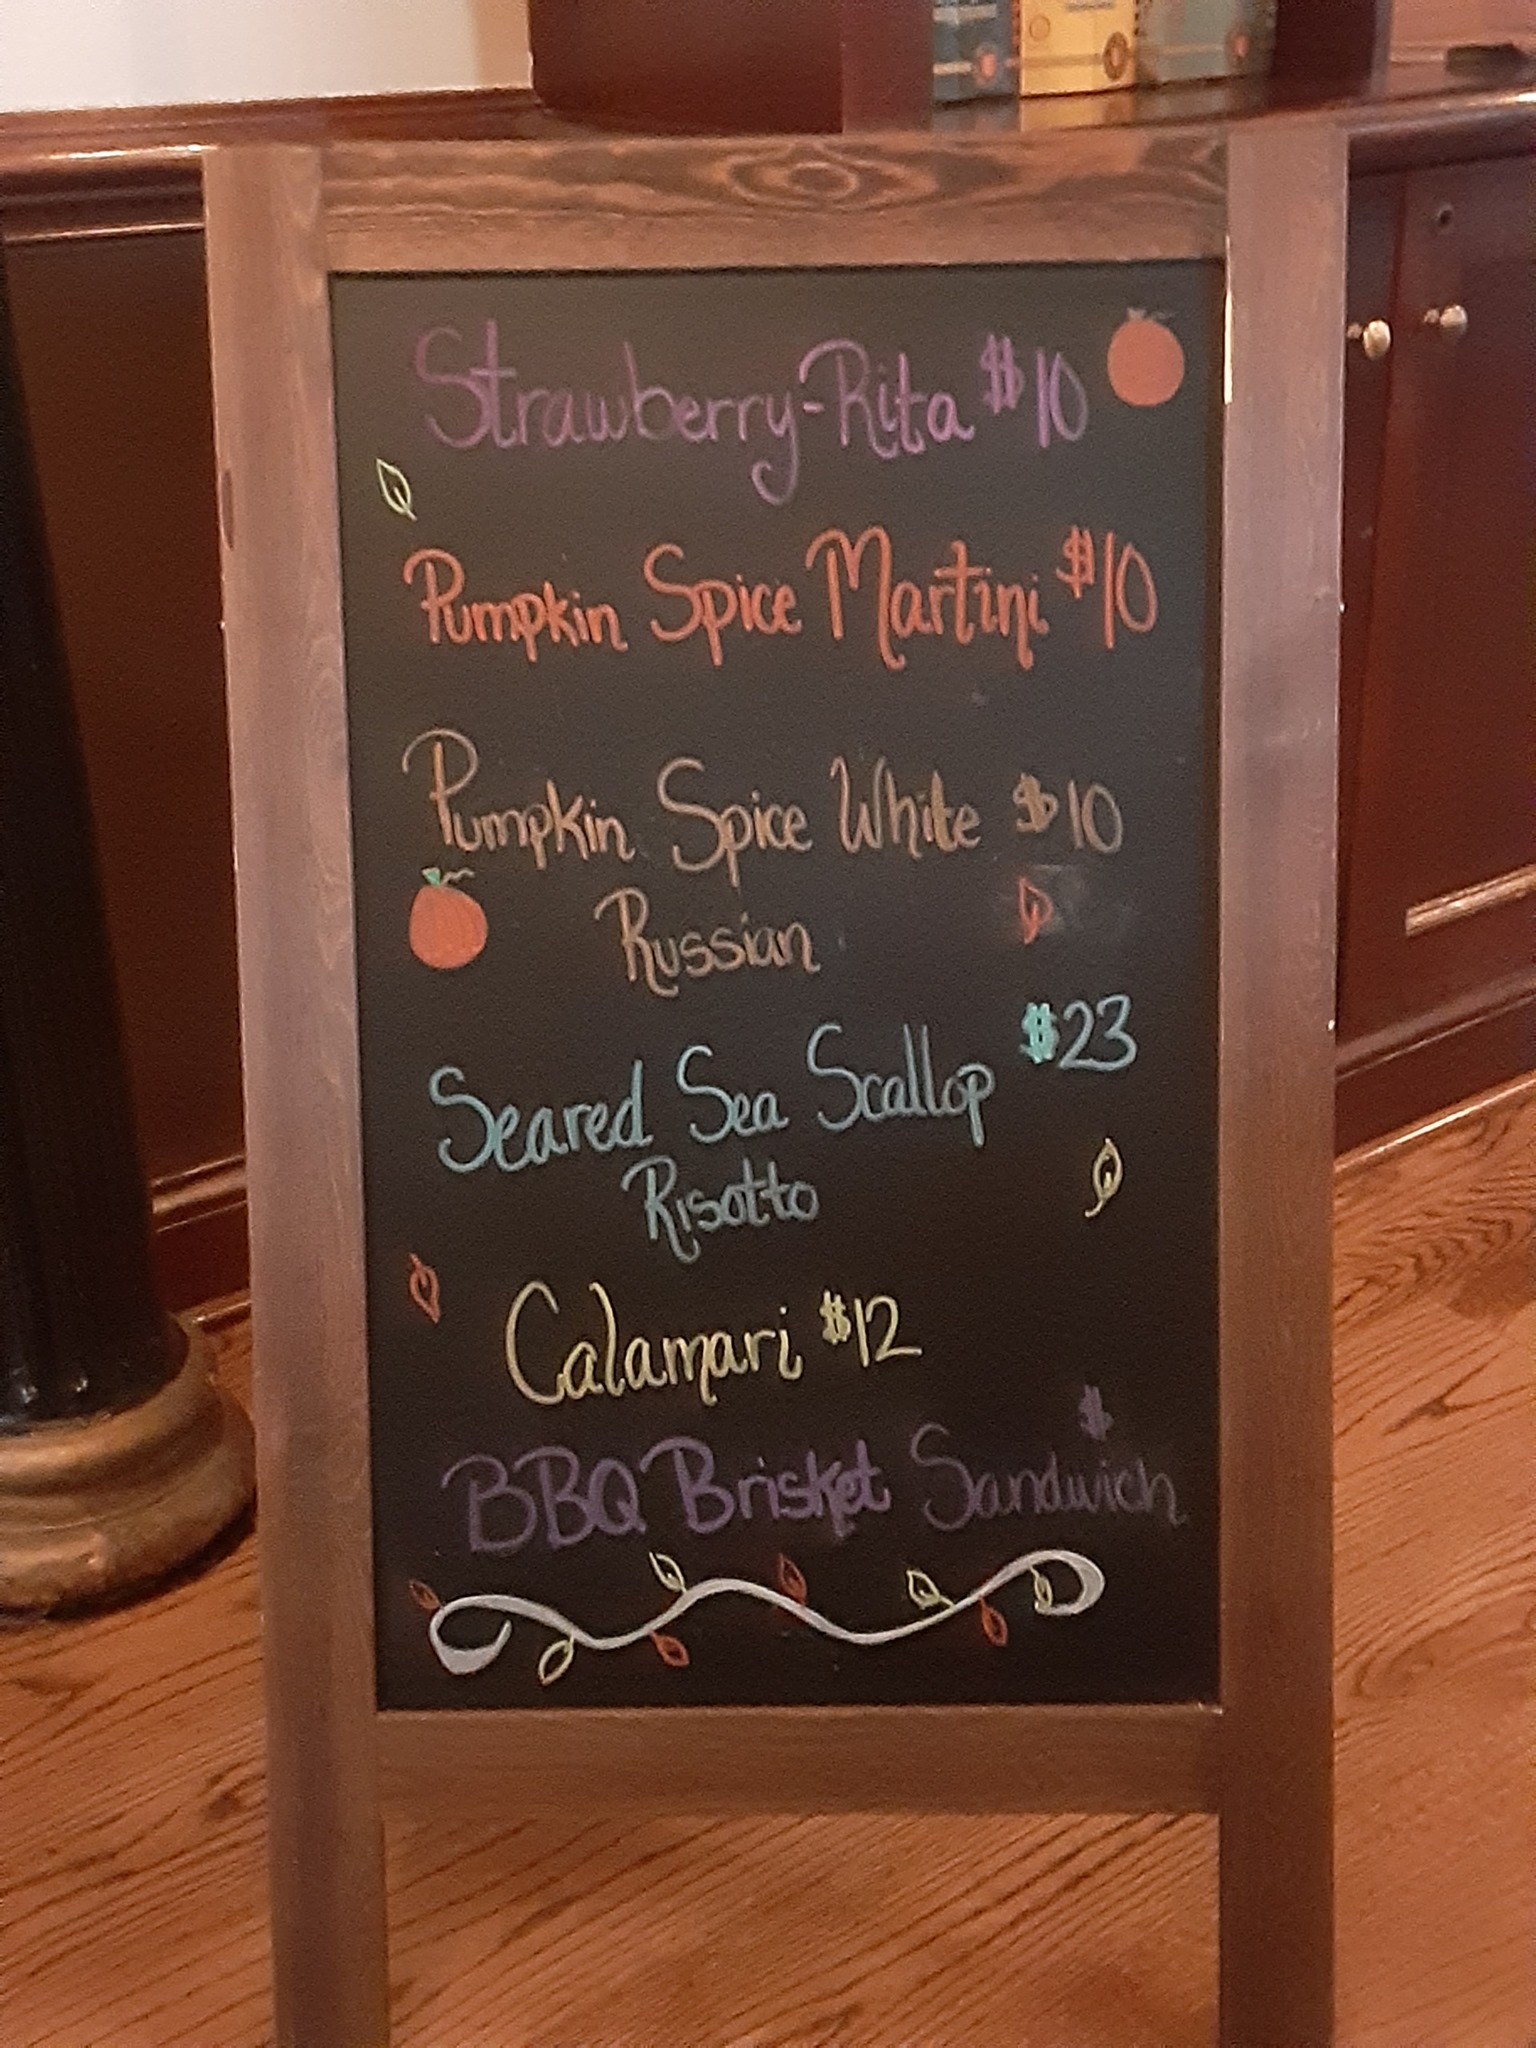 Strawberry-Rita $10
Pumpkin Spice Martini $10
Pumpkin Spice White $10
Russian
Seared Sea Scallop $23
Risotto
Calamari $12
$
BBQ Brisket Sandwich